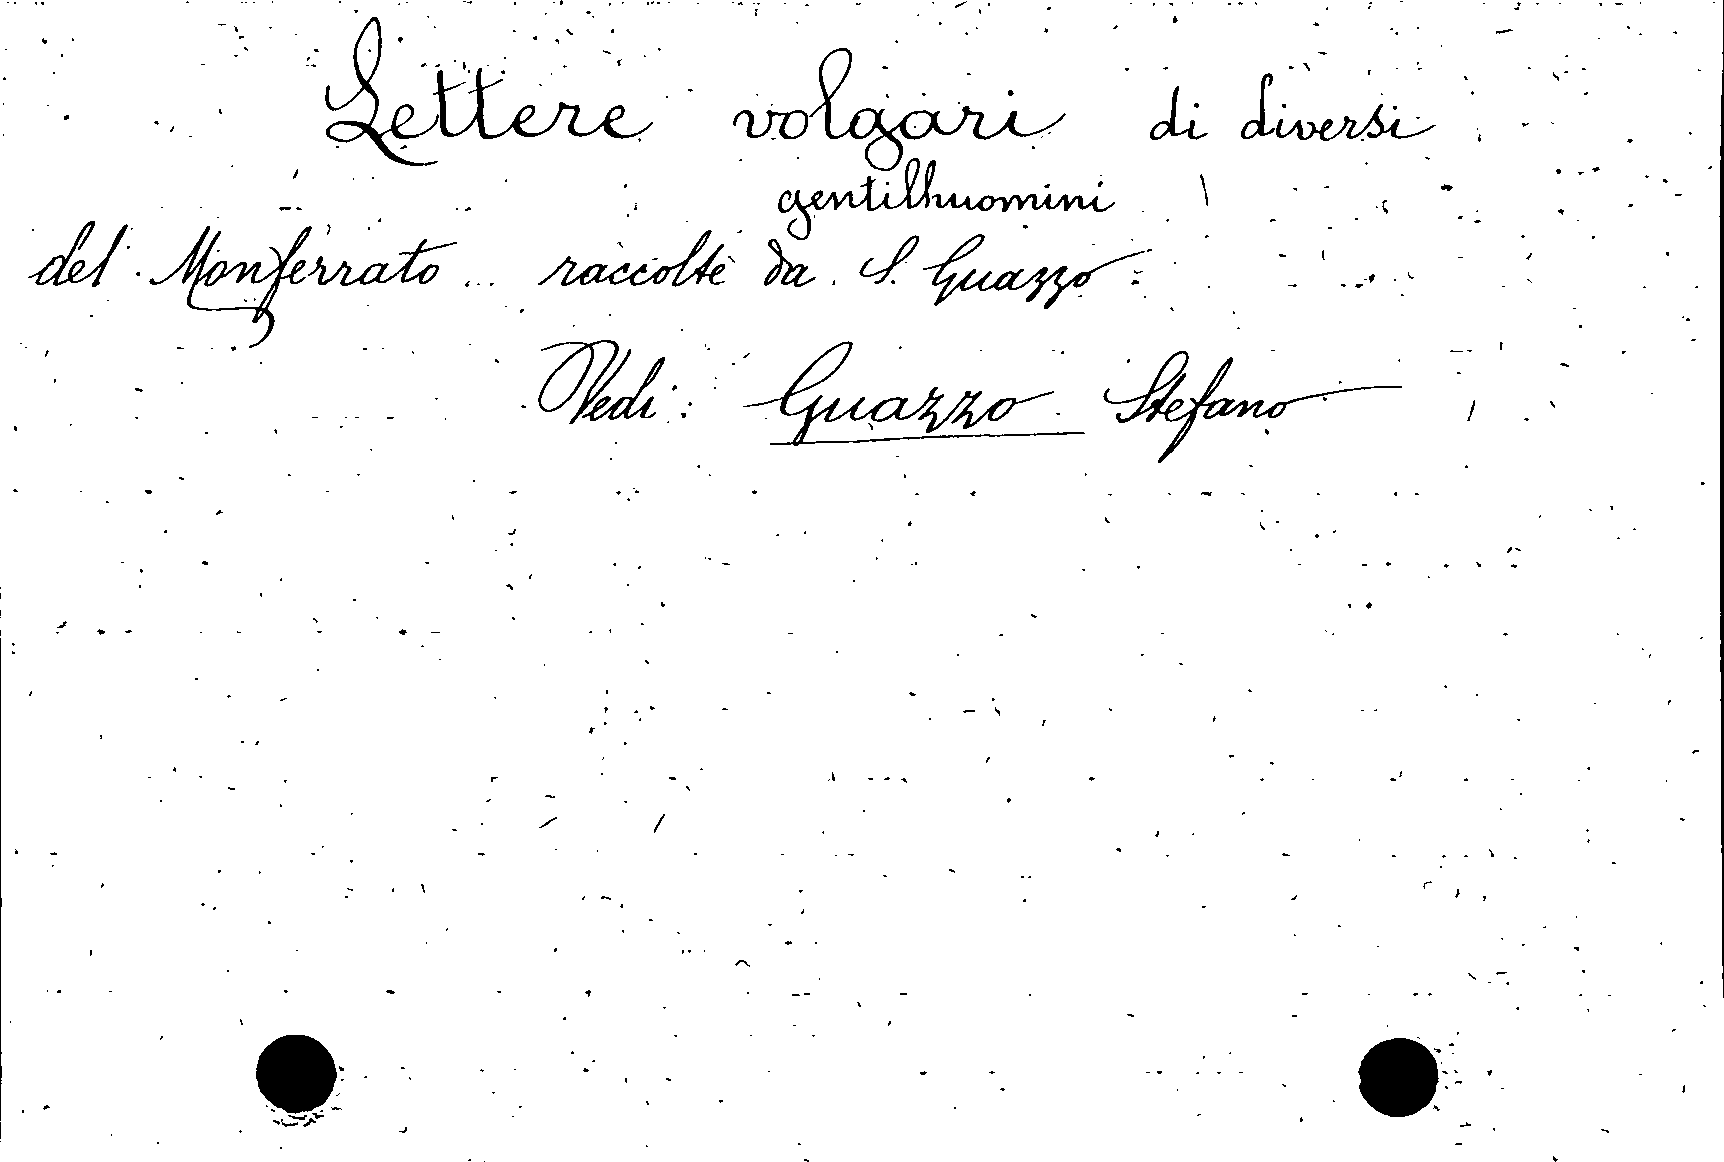 Lettere volgari di diversi
gentilhuomini
del Monferrato .. raccolte da S. Guazzo =
Vedi : Guazzo Stefano